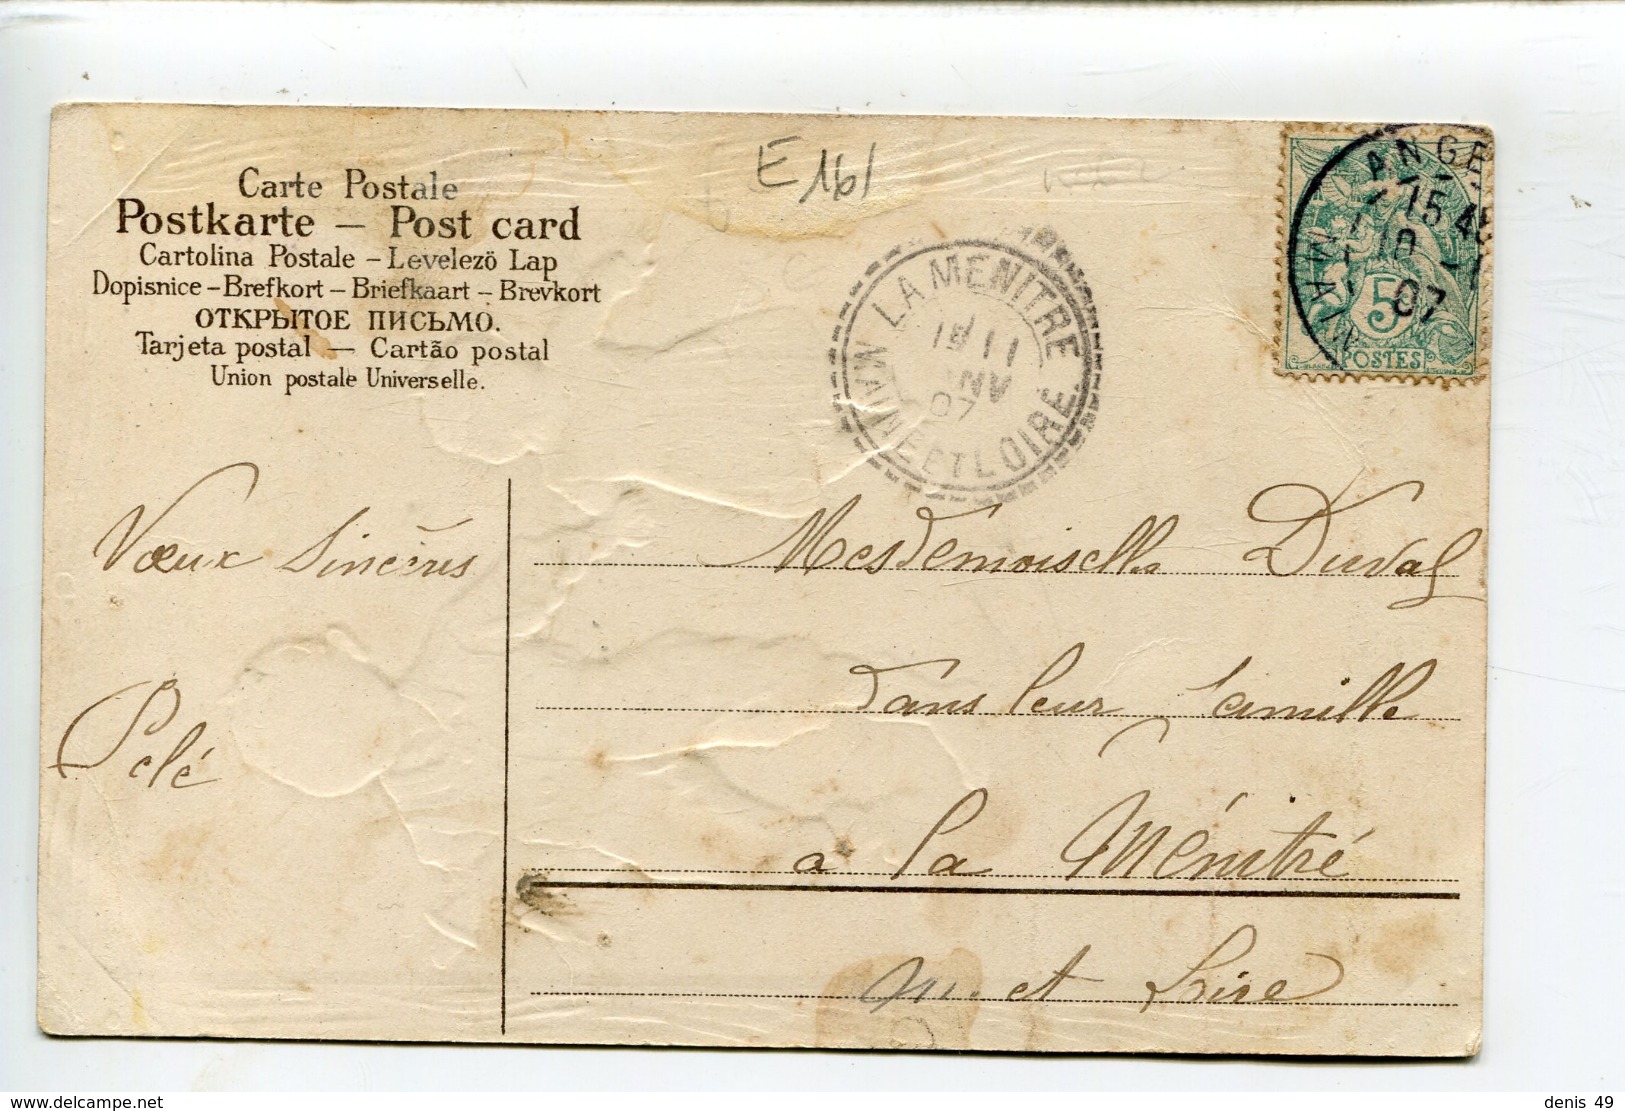 E161
Carte Postale
Postkarte – Post card
Cartolina Postale – Levelezö Lap
Dopisnice – Brefkort – Briefkaart – Brevkort
ОТКРЫТОЕ ПИСЬМО.
Tarjeta postal — Cartão postal
Union postale Universelle.
LA MENITRE
11
07
MAINE ET LOIRE
ANGE
15 45
10 -1
07
M
5
POSTES
Vœux Sincères
Pelé
Mesdemoiselles Duval
dans leur famille
a la Ménitré
M. et Loire
denis 49